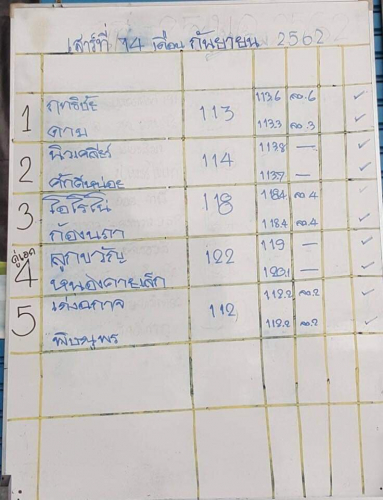 เสาร์ที่ 14 เดือน กันยายน 2562
1 ฤทธิชัย 113 113.6 ลด.6 ✓
ดาบ 113.3 ลด.3 ✓
2 นิวเคลียร์ 114 113.8 — ✓
ศักดิ์หน่อย 113.7 — ✓
3 โอโรโน่ 118 118.4 ลด.4 ✓
ก้องนภา 118.4 ลด.4 ✓
คู่เอก 4 ลูกขวัญ 122 119 — ✓
หนองคายเล็ก 122.1 — ✓
5 เก่งอกาจ 112 112.2 ลด.2 ✓
พิษณุพร 112.2 ลด.2 ✓